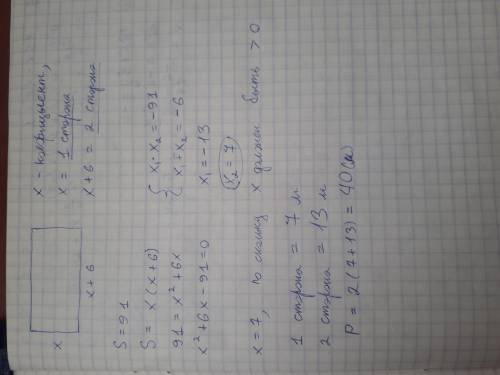 x - коэфицыент,
x = 1 сторона
x + 6 = 2 сторона
x
x + 6
S = 91
S = x (x + 6)
91 = x² + 6x
x² + 6x - 91 = 0
{ x₁ · x₂ = -91
x₁ + x₂ = -6
x₁ = -13
x₂ = 7
x = 7, по скольку x должен быть > 0
1 сторона = 7 м
2 сторона = 13 м
P = 2 (7 + 13) = 40 (м)